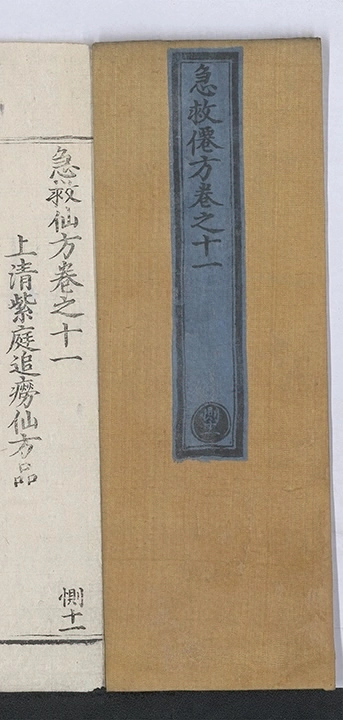 急救僊方卷之十一
惻十一
急救仙方卷之十一
上清紫庭追癆仙方品
惻十一